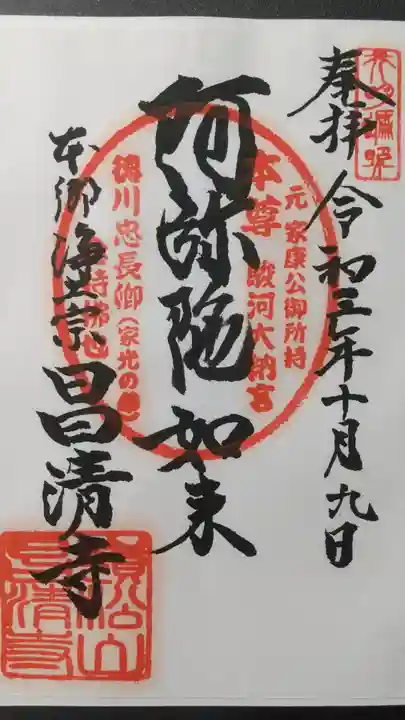 奉拝 令和三年十月九日
阿弥陀如来
本郷 浄土宗 昌清寺
元 家康公御所持
本尊 駿河大納言
徳川忠長卿（家光の弟）
昌清寺